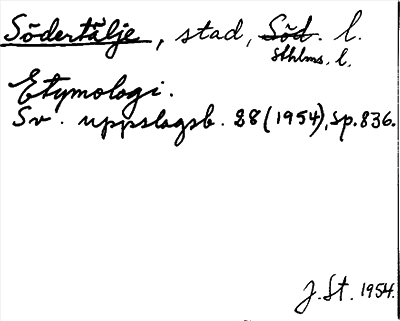 Södertälje, stad, Söd. l.
Sthlms. l.
Etymologi.
Sv. uppslagsb. 28 (1954), sp. 836.
J. St. 1954.